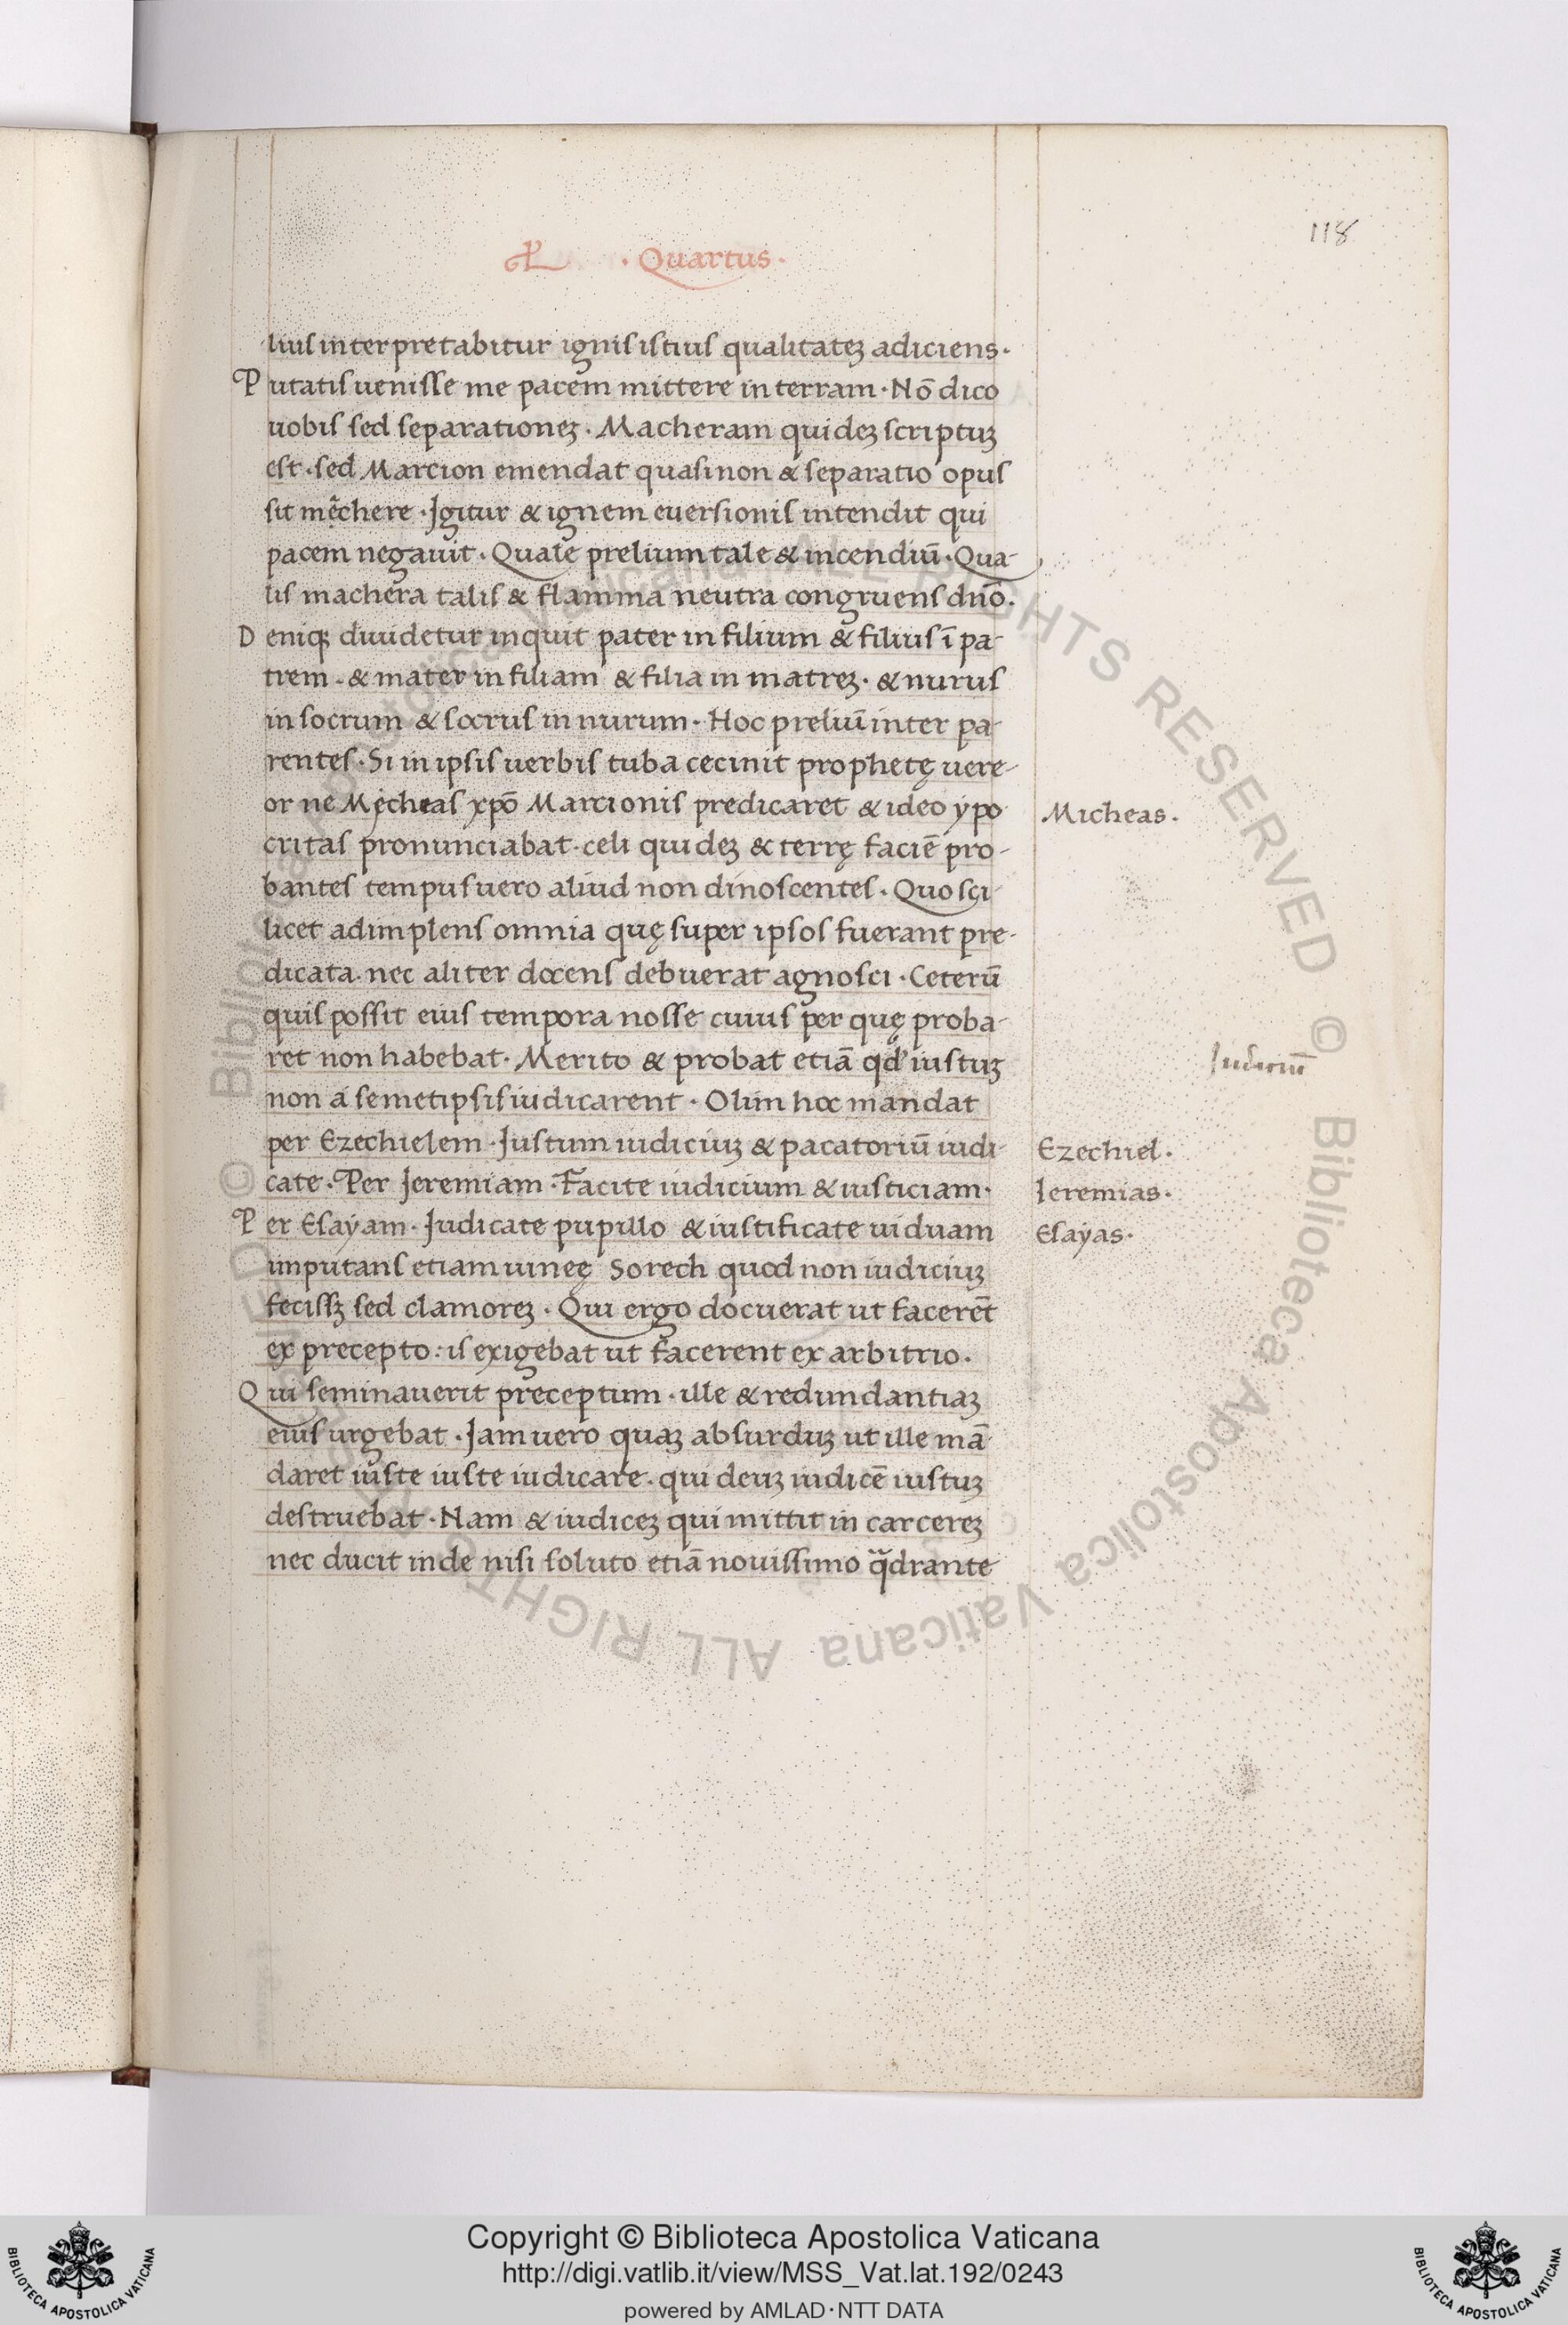 118
· Quartus ·
lius interpretabitur ignis istius qualitateꝫ adiciens·
Putatis uenisse me pacem mittere in terram · Nō dico
uobis sed separationeꝫ · Macheram quideꝫ scriptuꝫ
est · sed Marcion emendat quasi non & separatio opus
sit mechere · Igitur & ignem euersionis intendit qui
pacem negauit · Quale prelium tale & incendiū · Qua-
lis machera talis & flamma neutra congruens dnō·
Deniqꝫ diuidetur inquit pater in filium & filius ī pa-
trem · & mater in filiam & filia in matreꝫ · & nurus
in socrum & socrus in nurum · Hoc preliū inter pa-
rentes · Si in ipsis uerbis tuba cecinit prophetę uere-
or ne Męcheas xpō Marcionis predicaret & ideo ypo
critas pronunciabat · celi quideꝫ & terrę faciē pro-
bantes tempus uero aliud non dinoscentes · Quo sci-
licet adimplens omnia quę super ipsos fuerant pre-
dicata · nec aliter docens debuerat agnosci · Ceterū
quis possit eius tempora nosse cuius per quę proba-
ret non habebat · Merito & probat etiā qd' iustuꝫ
non a semetipsis iudicarent · Olim hoc mandat
per Ezechielem · Iustum iudiciuꝫ & pacatoriū iudi-
cate · Per Ieremiam · Facite iudicium & iusticiam·
Per Esaÿam · Iudicate pupillo & iustificate uiduam
imputans etiam uineę Sorech quod non iudiciuꝫ
fecissꝫ sed clamoreꝫ · Qui ergo docuerat ut facerēt
ex precepto : is exigebat ut facerent ex arbitrio·
Qui seminauerit preceptum · ille & redundantiaꝫ
eius urgebat · Iam uero quaꝫ absurduꝫ ut ille mā
daret iuste iuste iudicare · qui deuꝫ iudicē iustuꝫ
destruebat · Nam & iudiceꝫ qui mittit in carcereꝫ
nec ducit inde nisi soluto etiā nouissimo q̄drante
Micheas·
Iudiciū
Ezechiel·
Ieremias·
Esaÿas·
© Biblioteca Apostolica Vaticana ALL RIGHTS RESERVED © Biblioteca Apostolica Vaticana ALL RIGHTS
Copyright © Biblioteca Apostolica Vaticana
http://digi.vatlib.it/view/MSS_Vat.lat.192/0243
powered by AMLAD · NTT DATA
BIBLIOTECA APOSTOLICA VATICANA
BIBLIOTECA APOSTOLICA VATICANA